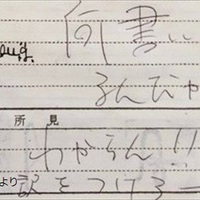 何書い
aug.
るんじゃ
所見
わからん!!
より
訳をつけろー